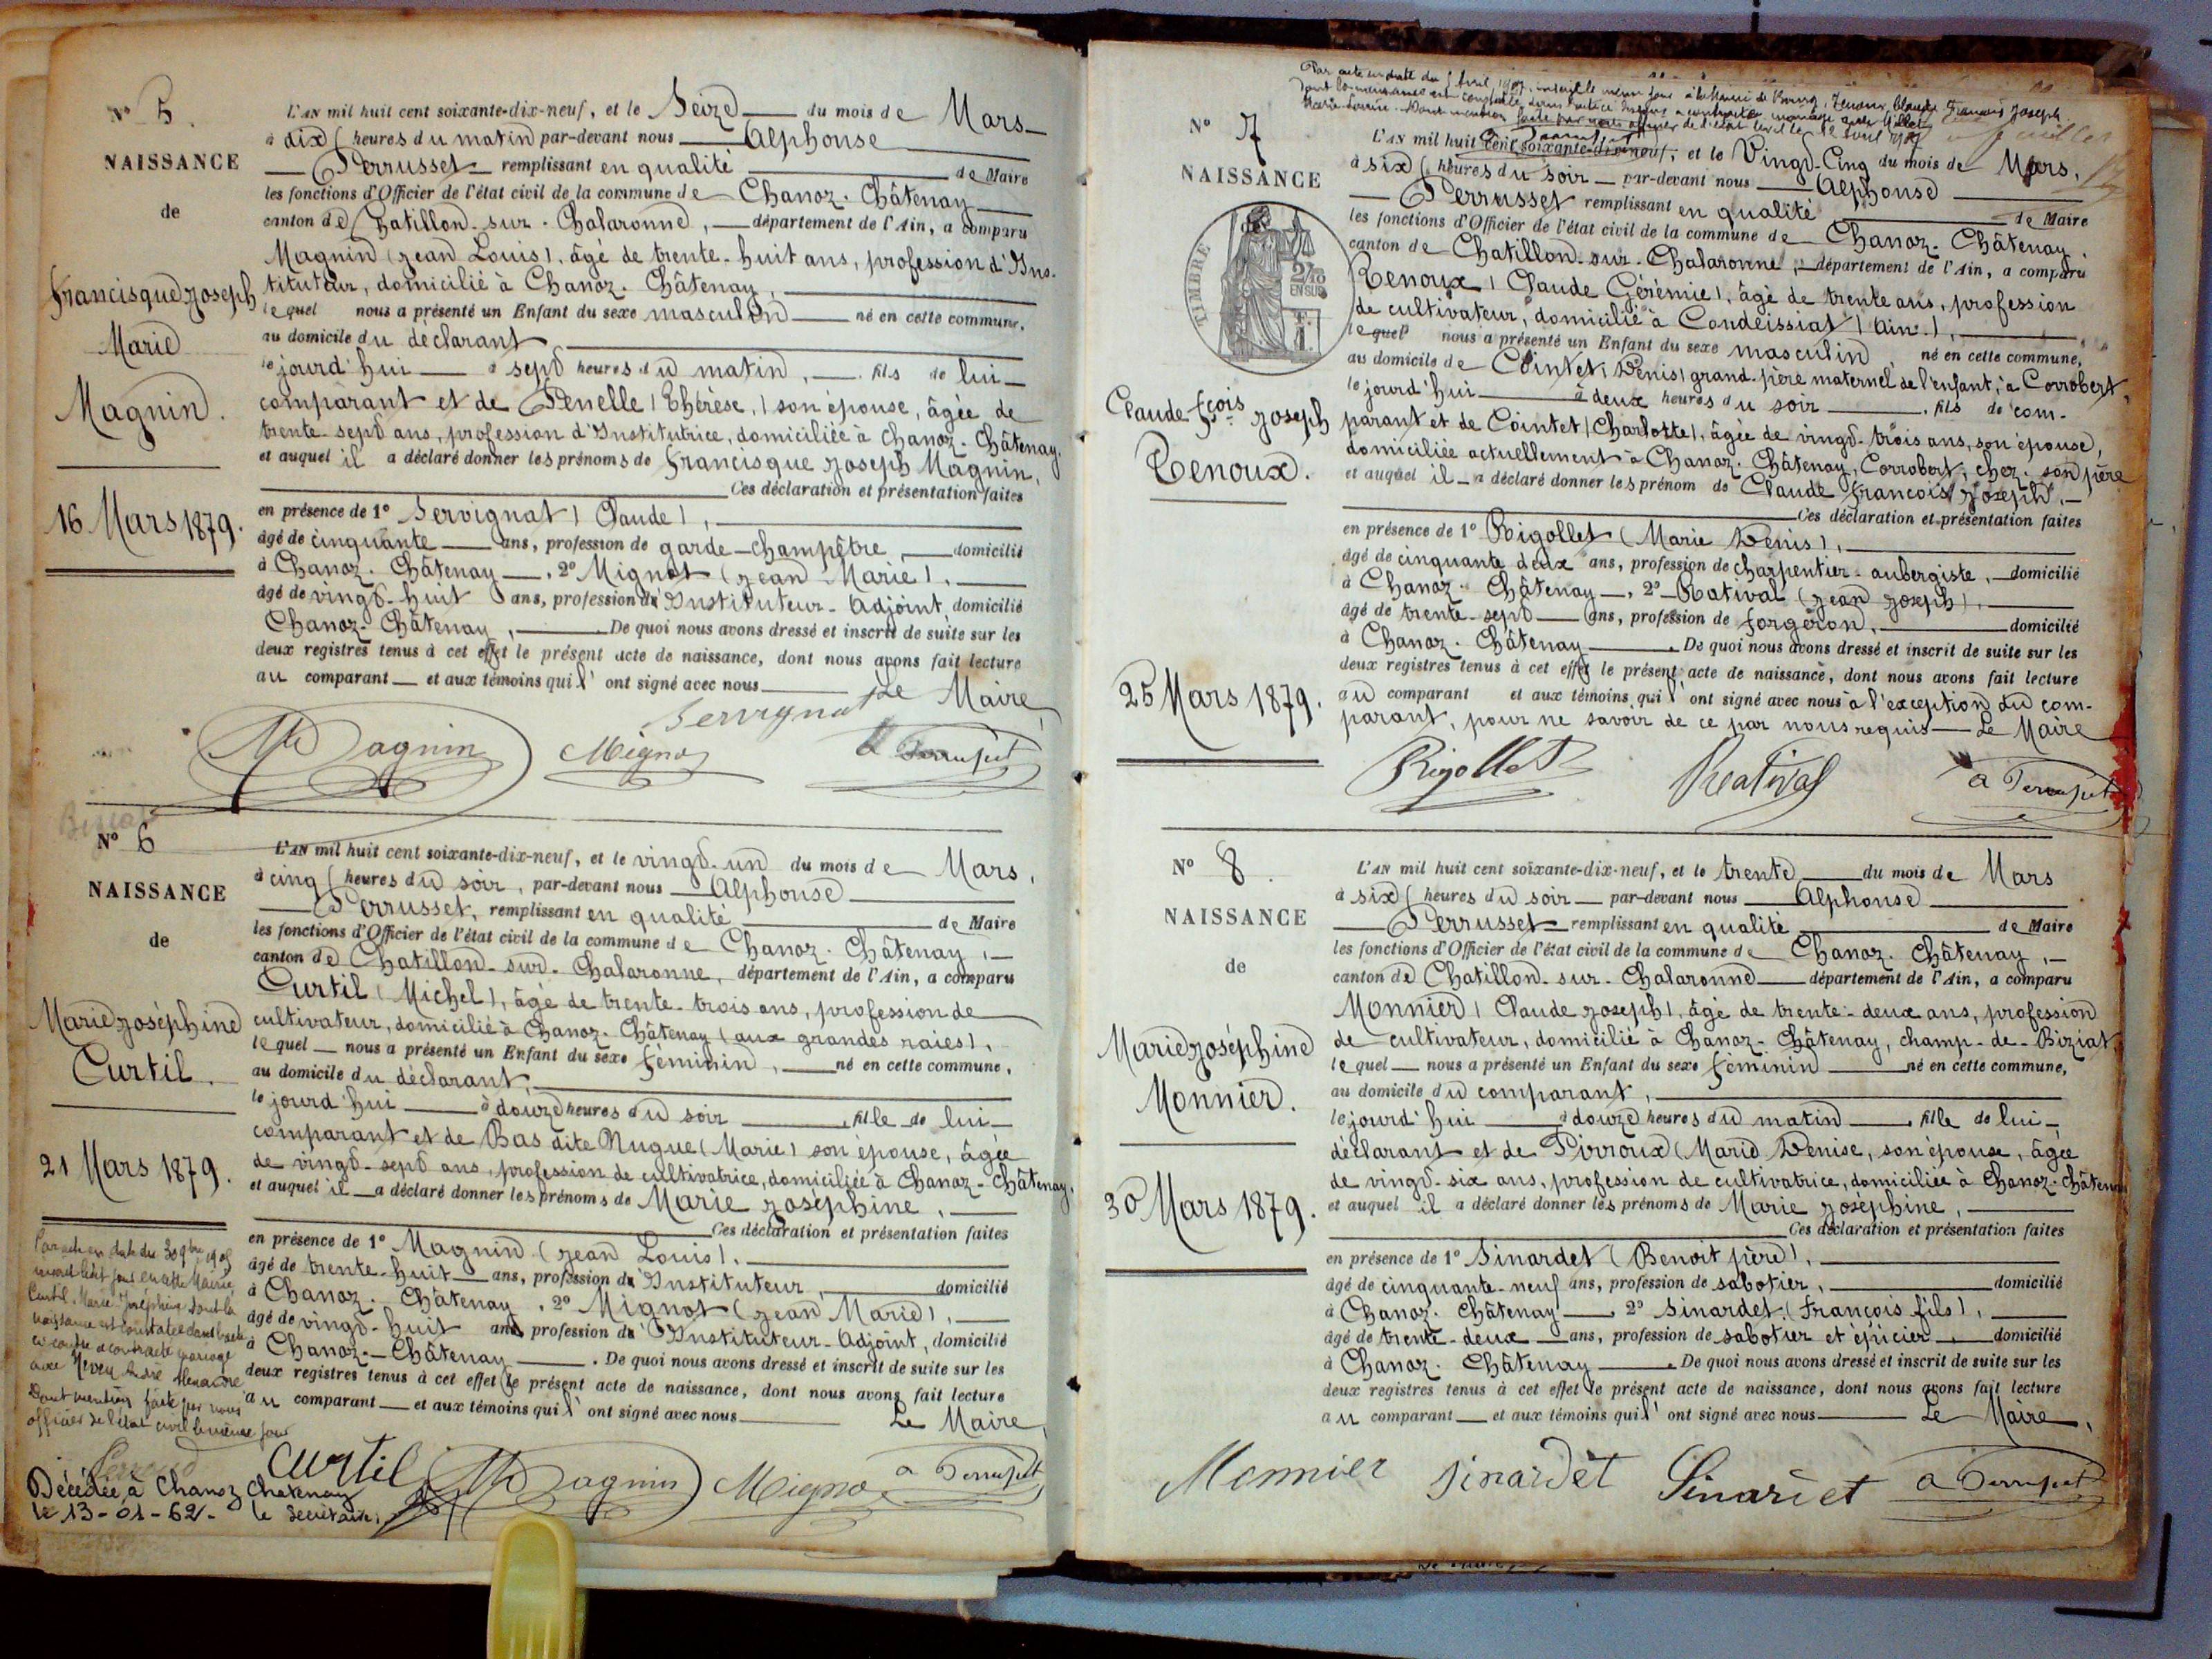 N° 5
NAISSANCE
de
Francisque Joseph
Marie
Magnin.
16 Mars 1879.
L'AN mil huit cent soixante-dix-neuf, et le Seize du mois de Mars
à dix heures du matin par-devant nous Alphonse
Perrusset remplissant en qualité de Maire
les fonctions d'Officier de l'état civil de la commune de Chanoz-Châtenay
canton de Chatillon-sur-Chalaronne, département de l'Ain, a comparu
Magnin (Jean Louis), âgé de trente-huit ans, profession d'Ins-
tituteur, domicilié à Chanoz-Châtenay,
lequel nous a présenté un Enfant du sexe masculin né en cette commune,
au domicile du déclarant
le jourd'hui à sept heures du matin, fils de lui
comparant et de Penelle (Thérèse,) son épouse, âgée de
trente-sept ans, profession d'Institutrice, domiciliée à Chanoz-Châtenay.
et auquel il a déclaré donner les prénoms de Francisque Joseph Magnin,
Ces déclaration et présentation faites
en présence de 1° Servignat (Claude),
âgé de cinquante ans, profession de garde-champêtre, domicilié
à Chanoz-Châtenay, 2° Mignot (Jean Marie),
âgé de vingt-huit ans, profession d'Instituteur-Adjoint, domicilié
Chanoz-Châtenay, De quoi nous avons dressé et inscrit de suite sur les
deux registres tenus à cet effet le présent acte de naissance, dont nous avons fait lecture
au comparant et aux témoins qui l'ont signé avec nous Le Maire,
Servignat
Magnin Mignot a Perrusset
N° 6
NAISSANCE
de
Marie Joséphine
Curtil.
21 Mars 1879.
L'AN mil huit cent soixante-dix-neuf, et le vingt-un du mois de Mars,
à cinq heures du soir, par-devant nous Alphonse
Perrusset, remplissant en qualité de Maire
les fonctions d'Officier de l'état civil de la commune de Chanoz-Châtenay,
canton de Chatillon-sur-Chalaronne, département de l'Ain, a comparu
Curtil (Michel), âgé de trente-trois ans, profession de
cultivateur, domicilié à Chanoz-Châtenay (aux grandes raies),
lequel nous a présenté un Enfant du sexe féminin, né en cette commune,
au domicile du déclarant,
le jourd'hui à douze heures du soir, fille de lui
comparant et de Bas dite Nugue (Marie) son épouse, âgée
de vingt-sept ans, profession de cultivatrice, domiciliée à Chanoz-Châtenay,
et auquel il a déclaré donner les prénoms de Marie Joséphine,
Ces déclaration et présentation faites
en présence de 1° Magnin (Jean Louis),
âgé de trente-huit ans, profession d'Instituteur, domicilié
à Chanoz-Châtenay, 2° Mignot (Jean Marie),
âgé de vingt-huit ans, profession d'Instituteur-Adjoint, domicilié
à Chanoz-Châtenay. De quoi nous avons dressé et inscrit de suite sur les
deux registres tenus à cet effet le présent acte de naissance, dont nous avons fait lecture
au comparant et aux témoins qui l'ont signé avec nous
Le Maire,
Par acte en date du 30 9bre
Curtil Marie Joséphine dont la
naissance est constatée dans l'acte
ci-contre a contracté mariage
avec
Dont mention faite par nous
officier de l'état civil le même jour
Curtil Magnin Mignot a Perrusset
Décédée à Chanoz Chatenay
le 13-01-62. le Secrétaire,
Par acte en date du 5 Avril 1907, inscrit le même jour à la Mairie de Bourg, Renoux Claude François Joseph
dont la naissance est constatée dans l'acte ci-dessous a contracté mariage avec
Marie Louise. Dont mention faite par nous officier de l'état civil le 12 avril 1907
N° 7
NAISSANCE
TIMBRE
2/10
EN SUS
Claude-fçois Joseph
Renoux.
25 Mars 1879.
L'AN mil huit cent soixante-dix-neuf, et le Vingt-Cinq du mois de Mars,
à six heures du soir par-devant nous Alphonse
Perrusset remplissant en qualité de Maire
les fonctions d'Officier de l'état civil de la commune de Chanoz-Châtenay
canton de Chatillon-sur-Chalaronne, département de l'Ain, a comparu
Renoux (Claude Gérémie), âgé de trente ans, profession
de cultivateur, domicilié à Condeissiat (Ain),
lequel nous a présenté un Enfant du sexe masculin, né en cette commune,
au domicile de Cointet (Denis) grand-père maternel de l'enfant, à Corrobert,
le jourd'hui à deux heures du soir, fils de com-
parant et de Cointet (Charlotte), âgée de vingt-trois ans, son épouse,
domiciliée actuellement à Chanoz-Châtenay, Corrobert, chez son père
et auquel il a déclaré donner les prénom de Claude François Joseph,
Ces déclaration et présentation faites
en présence de 1° Rigollet (Marie Denis),
âgé de cinquante deux ans, profession de charpentier-aubergiste, domicilié
à Chanoz-Châtenay, 2° Rativat (Jean Joseph),
âgé de trente-sept ans, profession de forgeron, domicilié
à Chanoz-Châtenay. De quoi nous avons dressé et inscrit de suite sur les
deux registres tenus à cet effet le présent acte de naissance, dont nous avons fait lecture
au comparant et aux témoins qui l'ont signé avec nous à l'exception du com-
parant, pour ne savoir de ce par nous requis Le Maire
Rigollet Rativat a Perrusset
N° 8.
NAISSANCE
de
Marie Joséphine
Monnier.
30 Mars 1879.
L'AN mil huit cent soixante-dix-neuf, et le trente du mois de Mars
à six heures du soir par-devant nous Alphonse
Perrusset remplissant en qualité de Maire
les fonctions d'Officier de l'état civil de la commune de Chanoz-Châtenay,
canton de Chatillon-sur-Chalaronne département de l'Ain, a comparu
Monnier (Claude Joseph), âgé de trente-deux ans, profession
de cultivateur, domicilié à Chanoz-Châtenay, champ-de-Biziat,
lequel nous a présenté un Enfant du sexe féminin né en cette commune,
au domicile du comparant,
le jourd'hui à douze heures du matin, fille de lui
déclarant et de Pirroux (Marie Denise, son épouse, âgée
de vingt-six ans, profession de cultivatrice, domiciliée à Chanoz-Châtenay
et auquel il a déclaré donner les prénoms de Marie Joséphine,
Ces déclaration et présentation faites
en présence de 1° Sinardet (Benoit père),
âgé de cinquante-neuf ans, profession de sabotier, domicilié
à Chanoz-Châtenay, 2° Sinardet (François fils),
âgé de trente-deux ans, profession de sabotier et épicier, domicilié
à Chanoz-Châtenay. De quoi nous avons dressé et inscrit de suite sur les
deux registres tenus à cet effet le présent acte de naissance, dont nous avons fait lecture
au comparant et aux témoins qui l'ont signé avec nous Le Maire,
Monnier Sinardet Sinardet a Perrusset